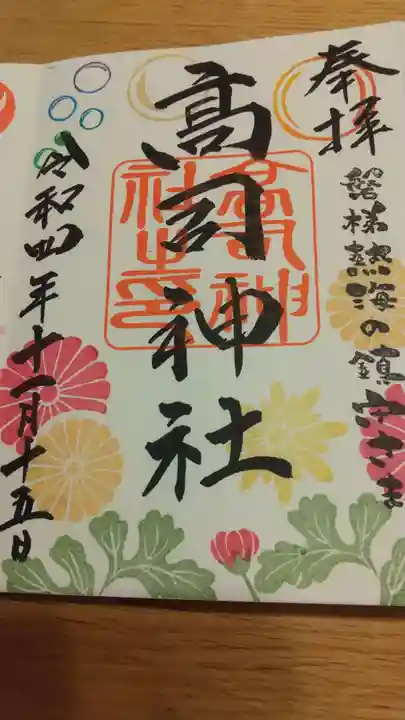 奉拝
磐梯熱海の鎮守さま
高司神社
高司神社之印
令和四年十一月十五日